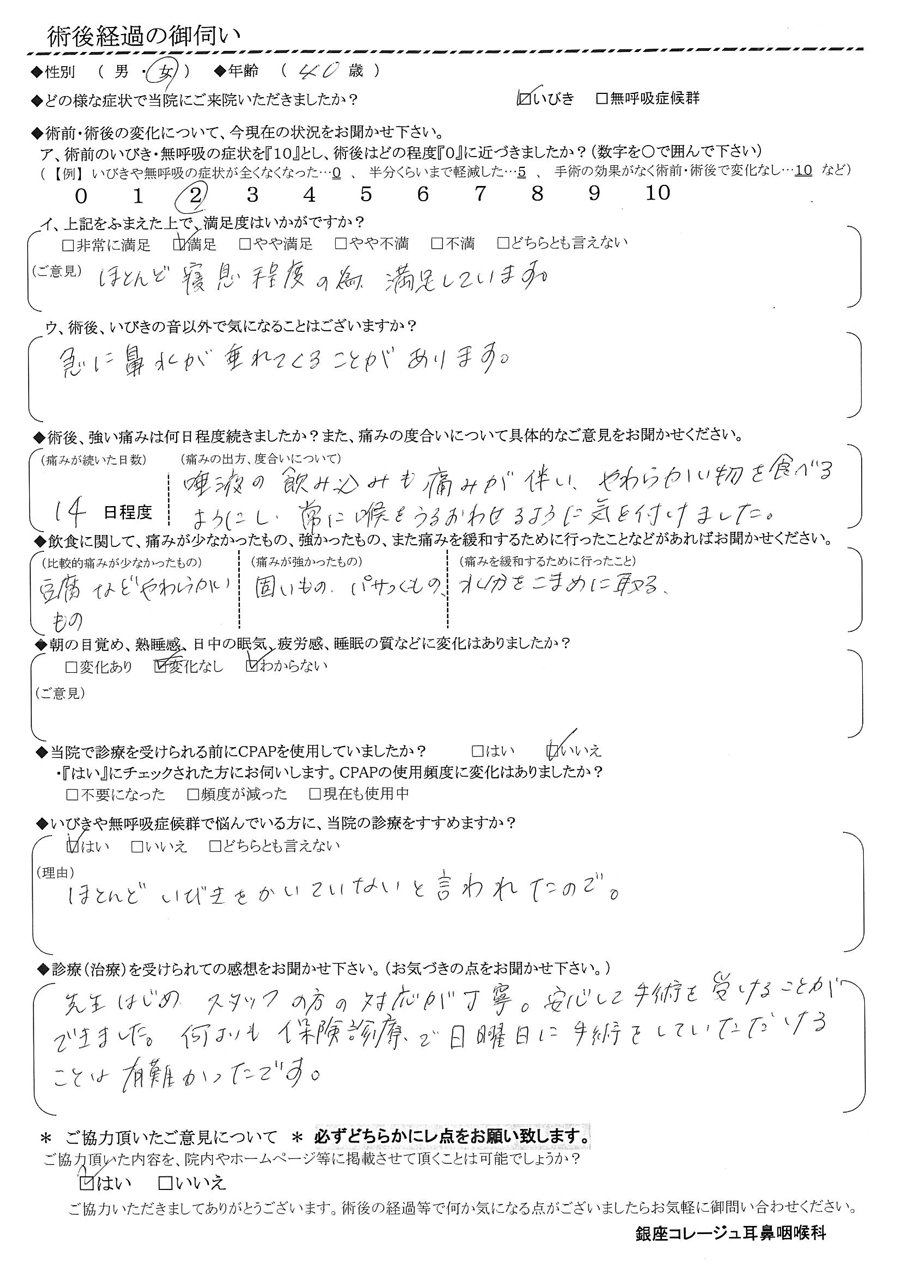 術後経過の御伺い
◆性別 （ 男 ・ 女 ） ◆年齢 （ 40 歳 ）
◆どの様な症状で当院にご来院いただきましたか？ ☑いびき □無呼吸症候群
◆術前・術後の変化について、今現在の状況をお聞かせ下さい。
ア、術前のいびき・無呼吸の症状を『10』とし、術後はどの程度『0』に近づきましたか？（数字を〇で囲んで下さい）
（【例】いびきや無呼吸の症状が全くなくなった…0 、 半分くらいまで軽減した…5 、 手術の効果がなく術前・術後で変化なし…10 など）
0 1 2 3 4 5 6 7 8 9 10
イ、上記をふまえた上で、満足度はいかがですか？
□非常に満足 ☑満足 □やや満足 □やや不満 □不満 □どちらとも言えない
（ご意見） ほとんど寝息程度の為、満足しています。
ウ、術後、いびきの音以外で気になることはございますか？
急に鼻水が垂れてくることがあります。
◆術後、強い痛みは何日程度続きましたか？また、痛みの度合いについて具体的なご意見をお聞かせください。
（痛みが続いた日数） （痛みの出方、度合いについて）
唾液の飲み込みも痛みが伴い、やわらかい物を食べる
14 日程度 ようにし、常に喉をうるおわせるように気を付けました。
◆飲食に関して、痛みが少なかったもの、強かったもの、また痛みを緩和するために行ったことなどがあればお聞かせください。
（比較的痛みが少なかったもの） （痛みが強かったもの） （痛みを緩和するために行ったこと）
豆腐などやわらかい 固いもの、パサつくもの、 水分をこまめに取る、
もの
◆朝の目覚め、熟睡感、日中の眠気、疲労感、睡眠の質などに変化はありましたか？
□変化あり ☑変化なし ☑わからない
（ご意見）
◆当院で診療を受けられる前にCPAPを使用していましたか？ □はい ☑いいえ
・『はい』にチェックされた方にお伺いします。CPAPの使用頻度に変化はありましたか？
□不要になった □頻度が減った □現在も使用中
◆いびきや無呼吸症候群で悩んでいる方に、当院の診療をすすめますか？
☑はい □いいえ □どちらとも言えない
（理由）
ほとんどいびきをかいていないと言われたので。
◆診療（治療）を受けられての感想をお聞かせ下さい。（お気づきの点をお聞かせ下さい。）
先生はじめ スタッフの方の対応が丁寧。安心して手術を受けることが
できました。何よりも保険診療で日曜日に手術をしていただける
ことは有難かったです。
＊ ご協力頂いたご意見について ＊ 必ずどちらかにレ点をお願い致します。
ご協力頂いた内容を、院内やホームページ等に掲載させて頂くことは可能でしょうか？
☑はい □いいえ
ご協力いただきましてありがとうございます。術後の経過等で何か気になる点がございましたらお気軽に御問い合わせください。
銀座コレージュ耳鼻咽喉科